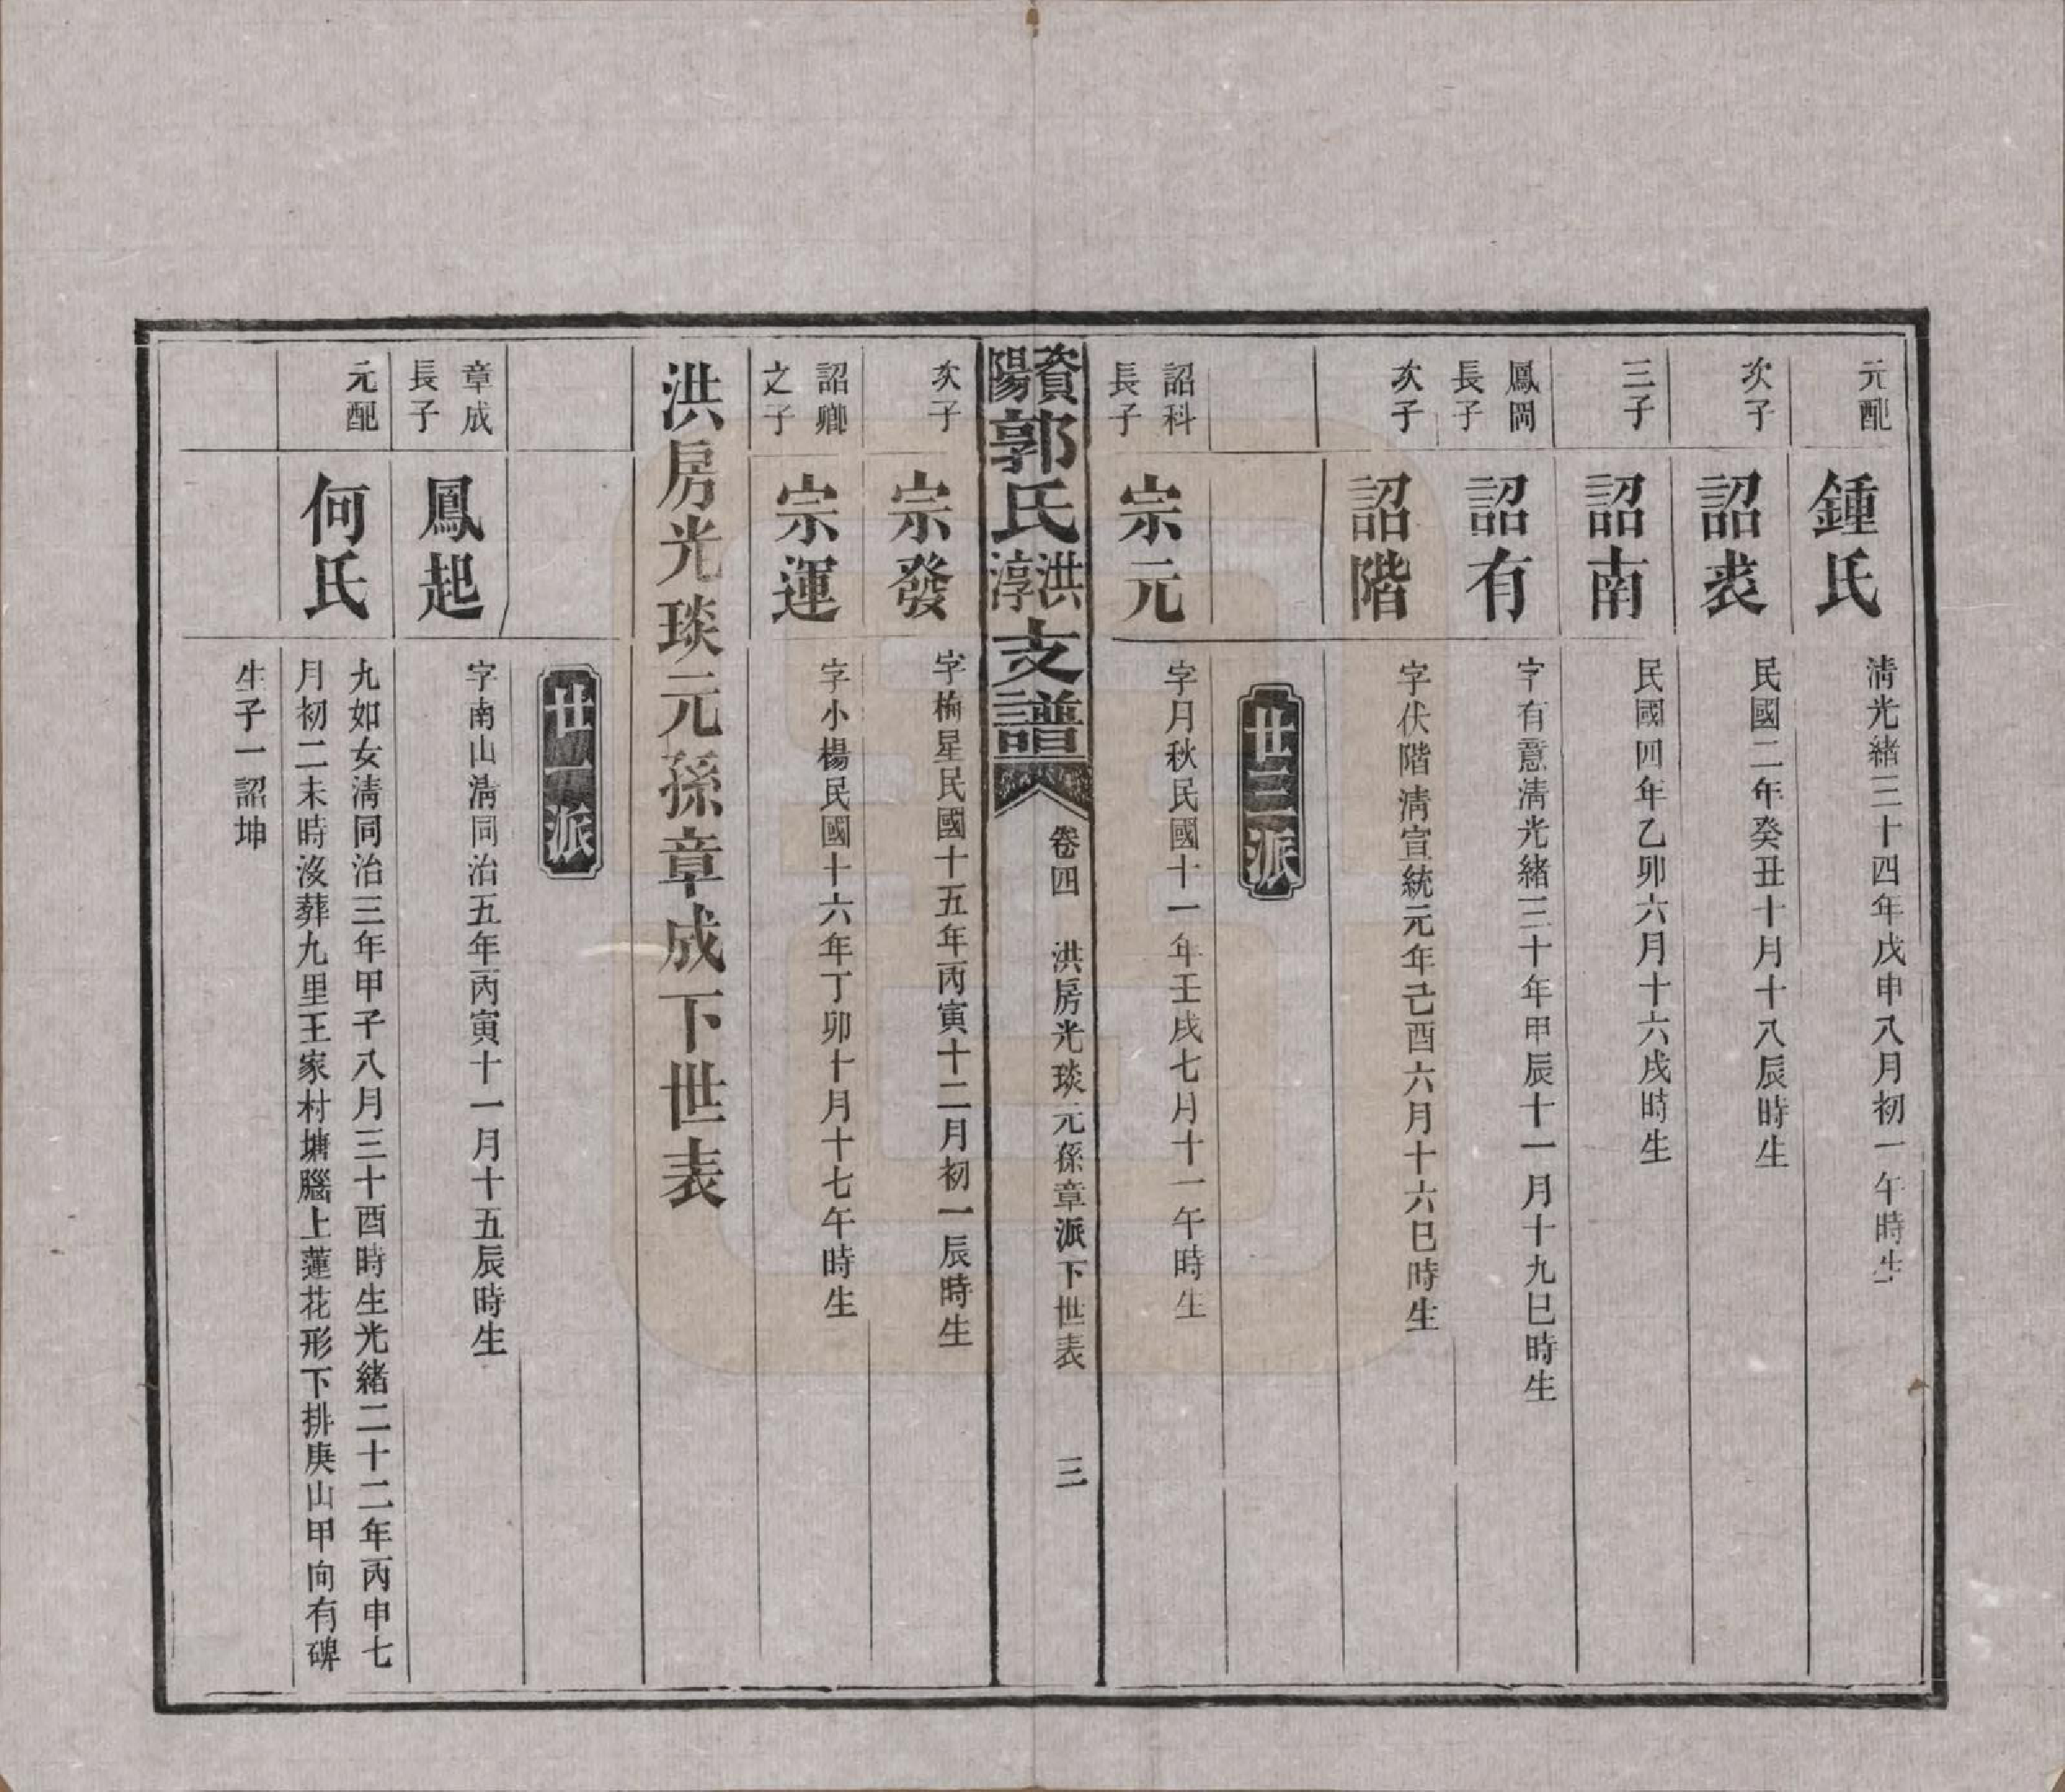 元配
鍾氏
清光緒三十四年戊申八月初一午時生
次子
詔裘
民國二年癸丑十月十八辰時生
三子
詔南
民國四年乙卯六月十六戌時生
鳳岡
長子
詔有
字有意清光緒三十年甲辰十一月十九巳時生
次子
詔階
字伏階清宣統元年己酉六月十六巳時生
廿三派
詔科
長子
宗元
字月秋民國十一年壬戌七月十一午時生
資陽郭氏洪淳支譜
卷四 洪房光琰元孫章派下世表 三
次子
宗發
字楡星民國十五年丙寅十二月初一辰時生
詔卿
之子
宗運
字小楊民國十六年丁卯十月十七午時生
洪房光琰元孫章成下世表
廿一派
章成
長子
鳳起
字南山清同治五年丙寅十一月十五辰時生
元配
何氏
九如女清同治三年甲子八月三十酉時生光緒二十二年丙申七
月初二未時沒葬九里王家村塘腦上蓮花形下排庚山甲向有碑
生子一詔坤